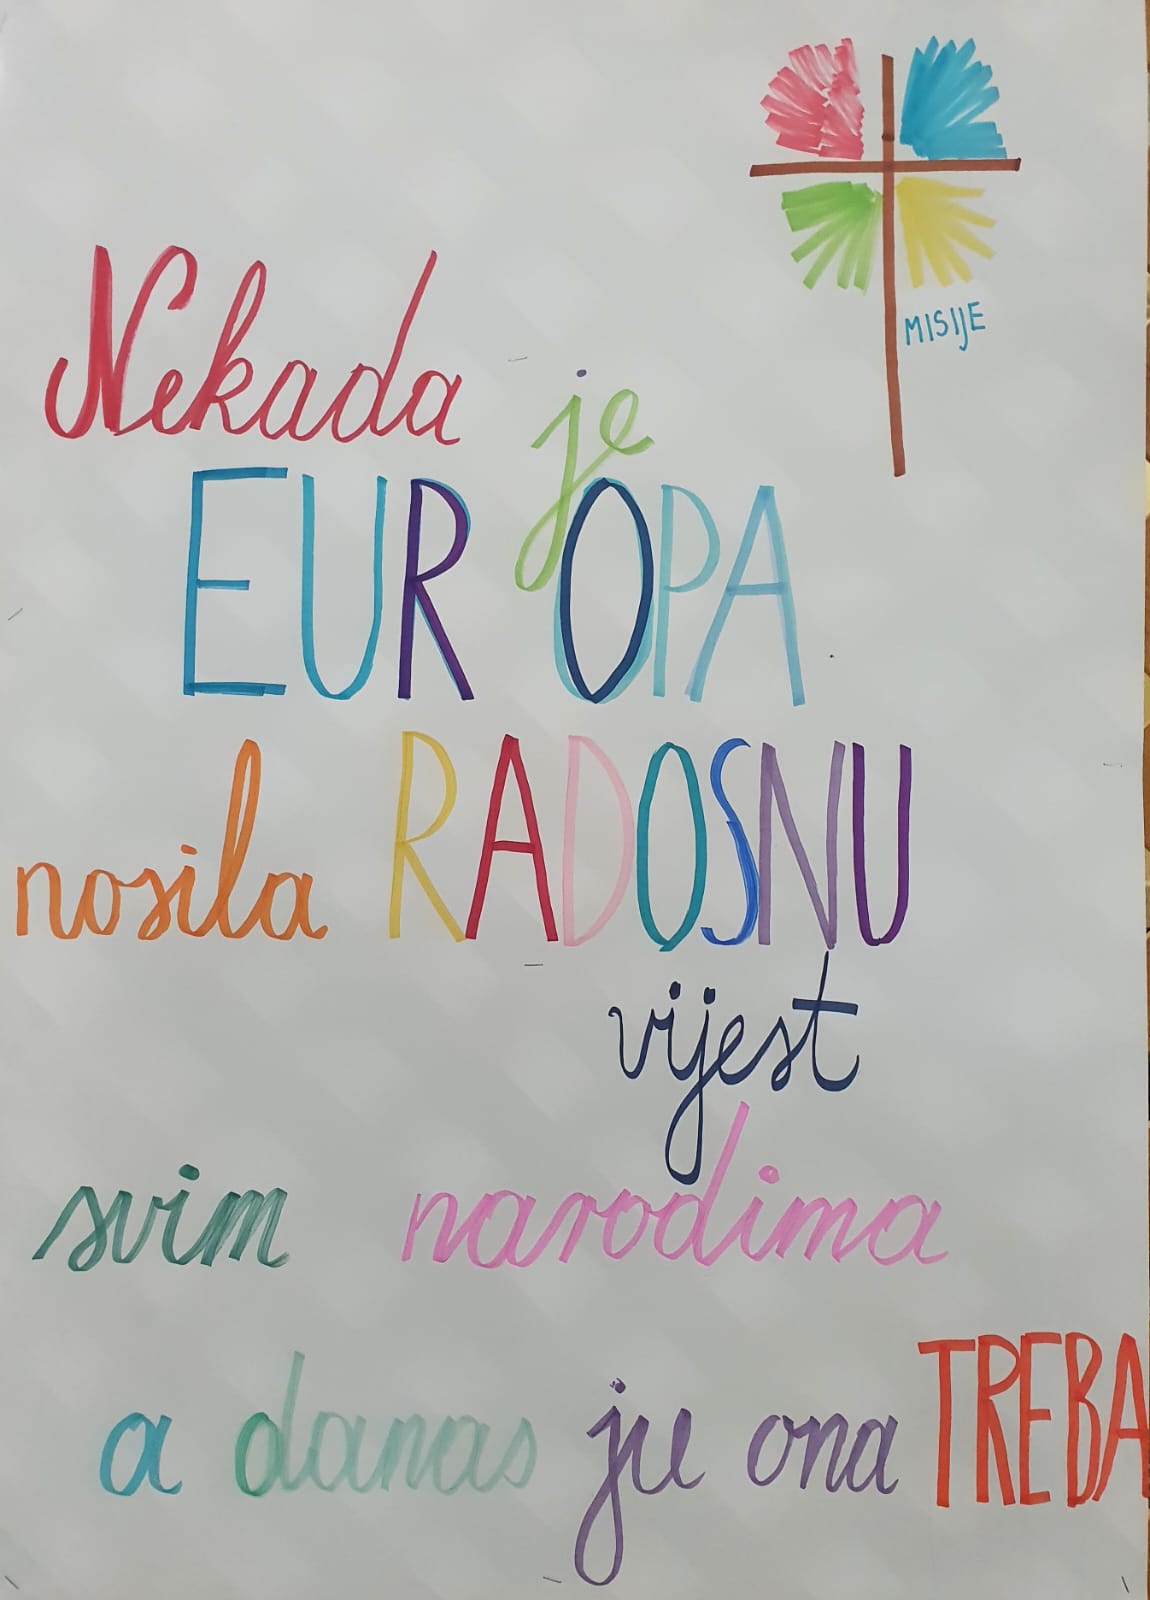 MISIJE
Nekada je
EUROPA
nosila RADOSNU
vijest
svim narodima
a danas ju ona TREBA